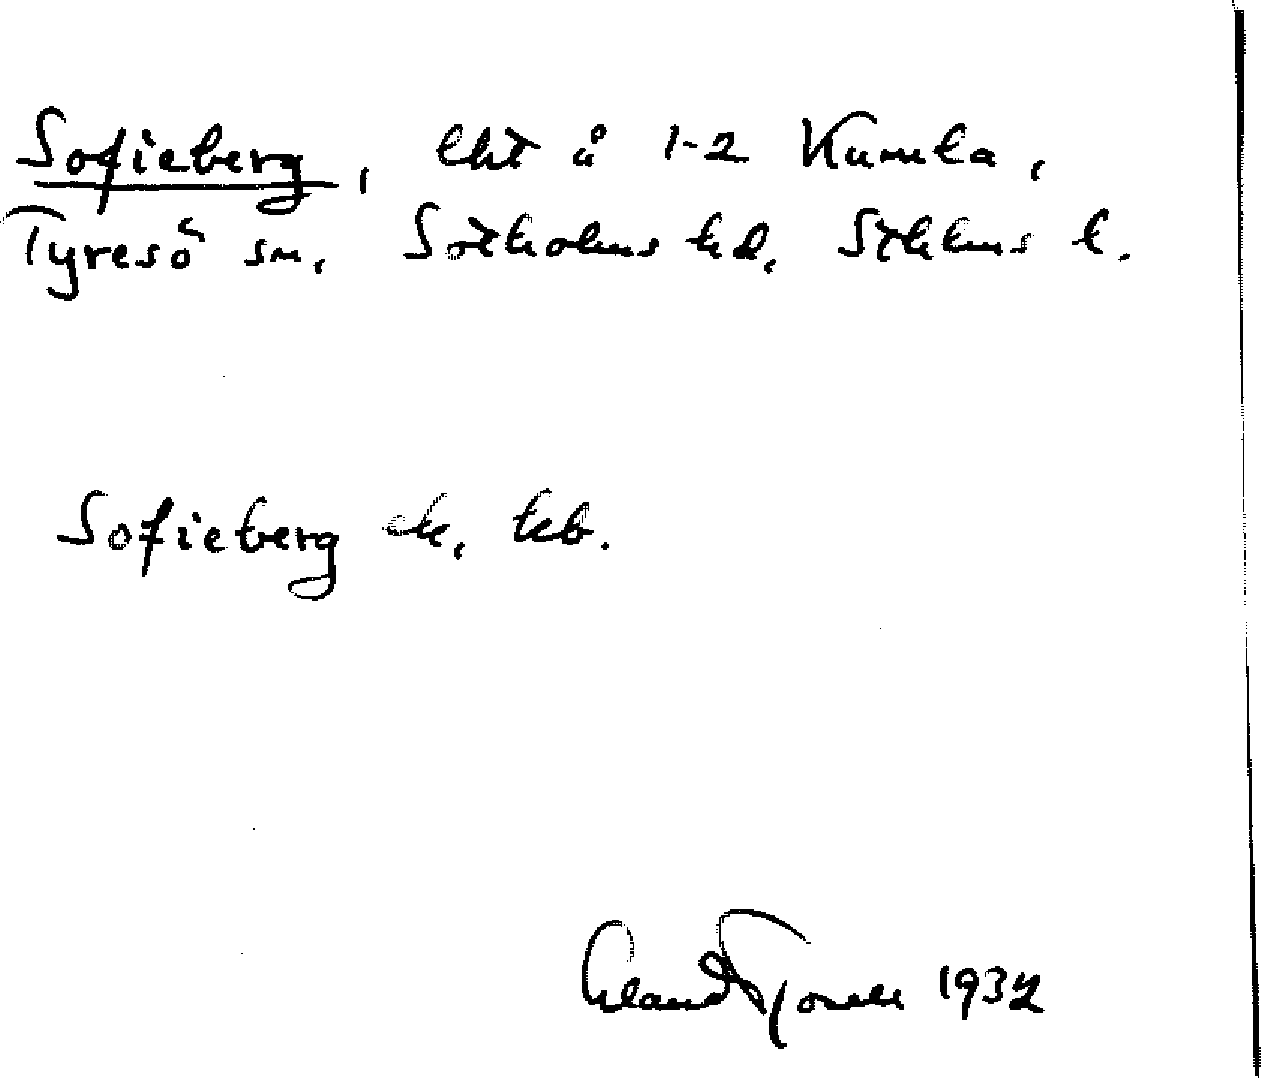 Sofieberg, lht å 1-2 Kumla,
Tyresö sn, Sotholms hd, Sthlms l.
Sofieberg ek, kb.
Erland 1932